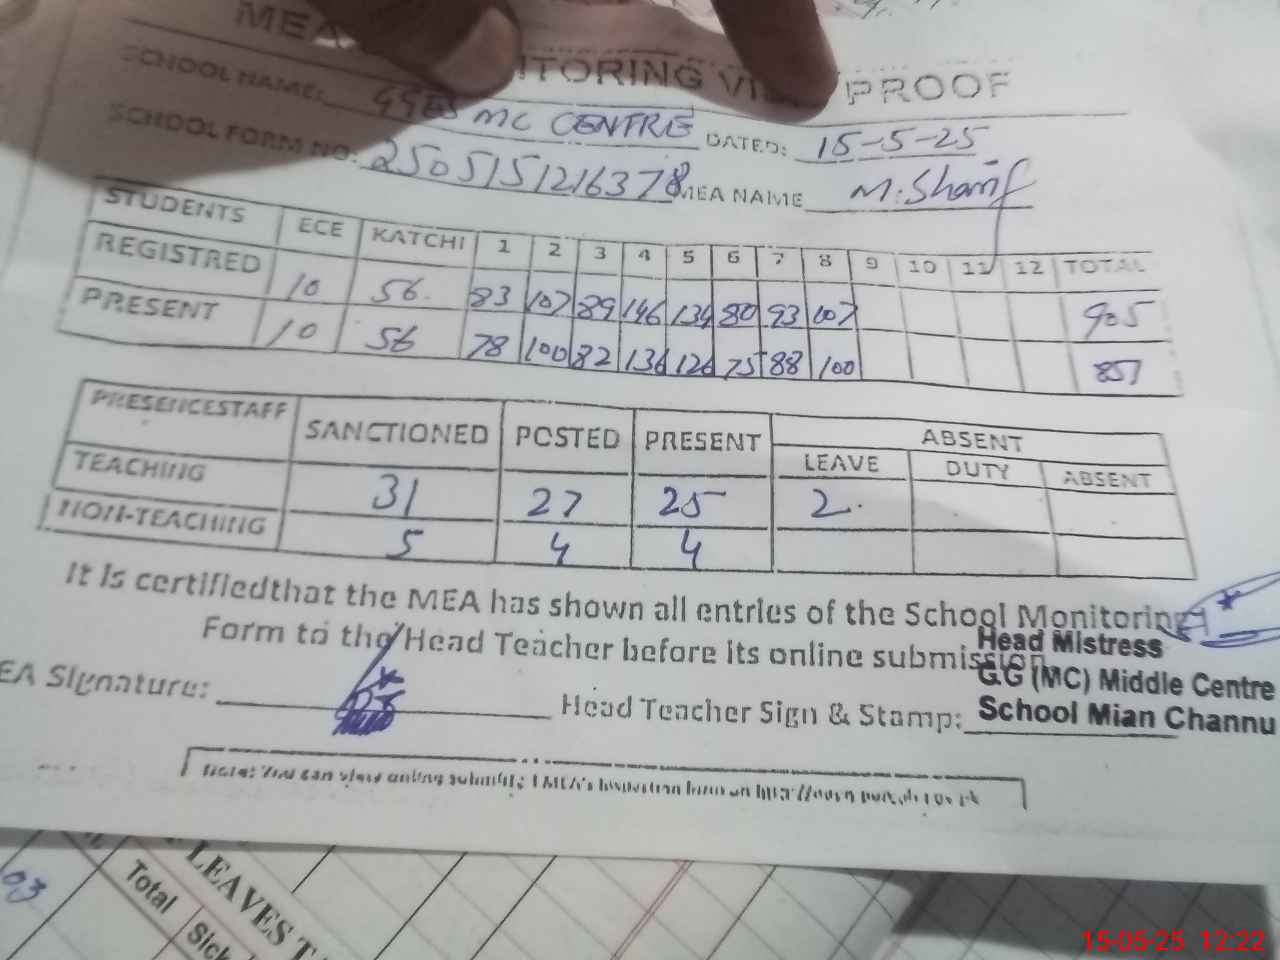 MEA MONITORING VISIT PROOF
SCHOOL NAME: GGES MC CENTRE DATED: 15-5-25
SCHOOL FORM NO: 2505151216378 MEA NAME M.Sharif
STUDENTS ECE KATCHI 1 2 3 4 5 6 7 8 9 10 11 12 TOTAL
REGISTRED 10 56 83 107 89 146 134 80 93 107 905
PRESENT 10 56 78 100 82 136 126 75 88 100 851
PRESENCESTAFF SANCTIONED POSTED PRESENT ABSENT
LEAVE DUTY ABSENT
TEACHING 31 27 25 2
NON-TEACHING 5 4 4
It is certifiedthat the MEA has shown all entries of the School Monitoring
Form to the Head Teacher before its online submission
EA Signature: Head Teacher Sign & Stamp:
Head Mistress
G.G (MC) Middle Centre
School Mian Channu
Note: You can view online submitted MEA's Inspection form on
03
Total
Sick
LEAVES T
15-05-25 12:22